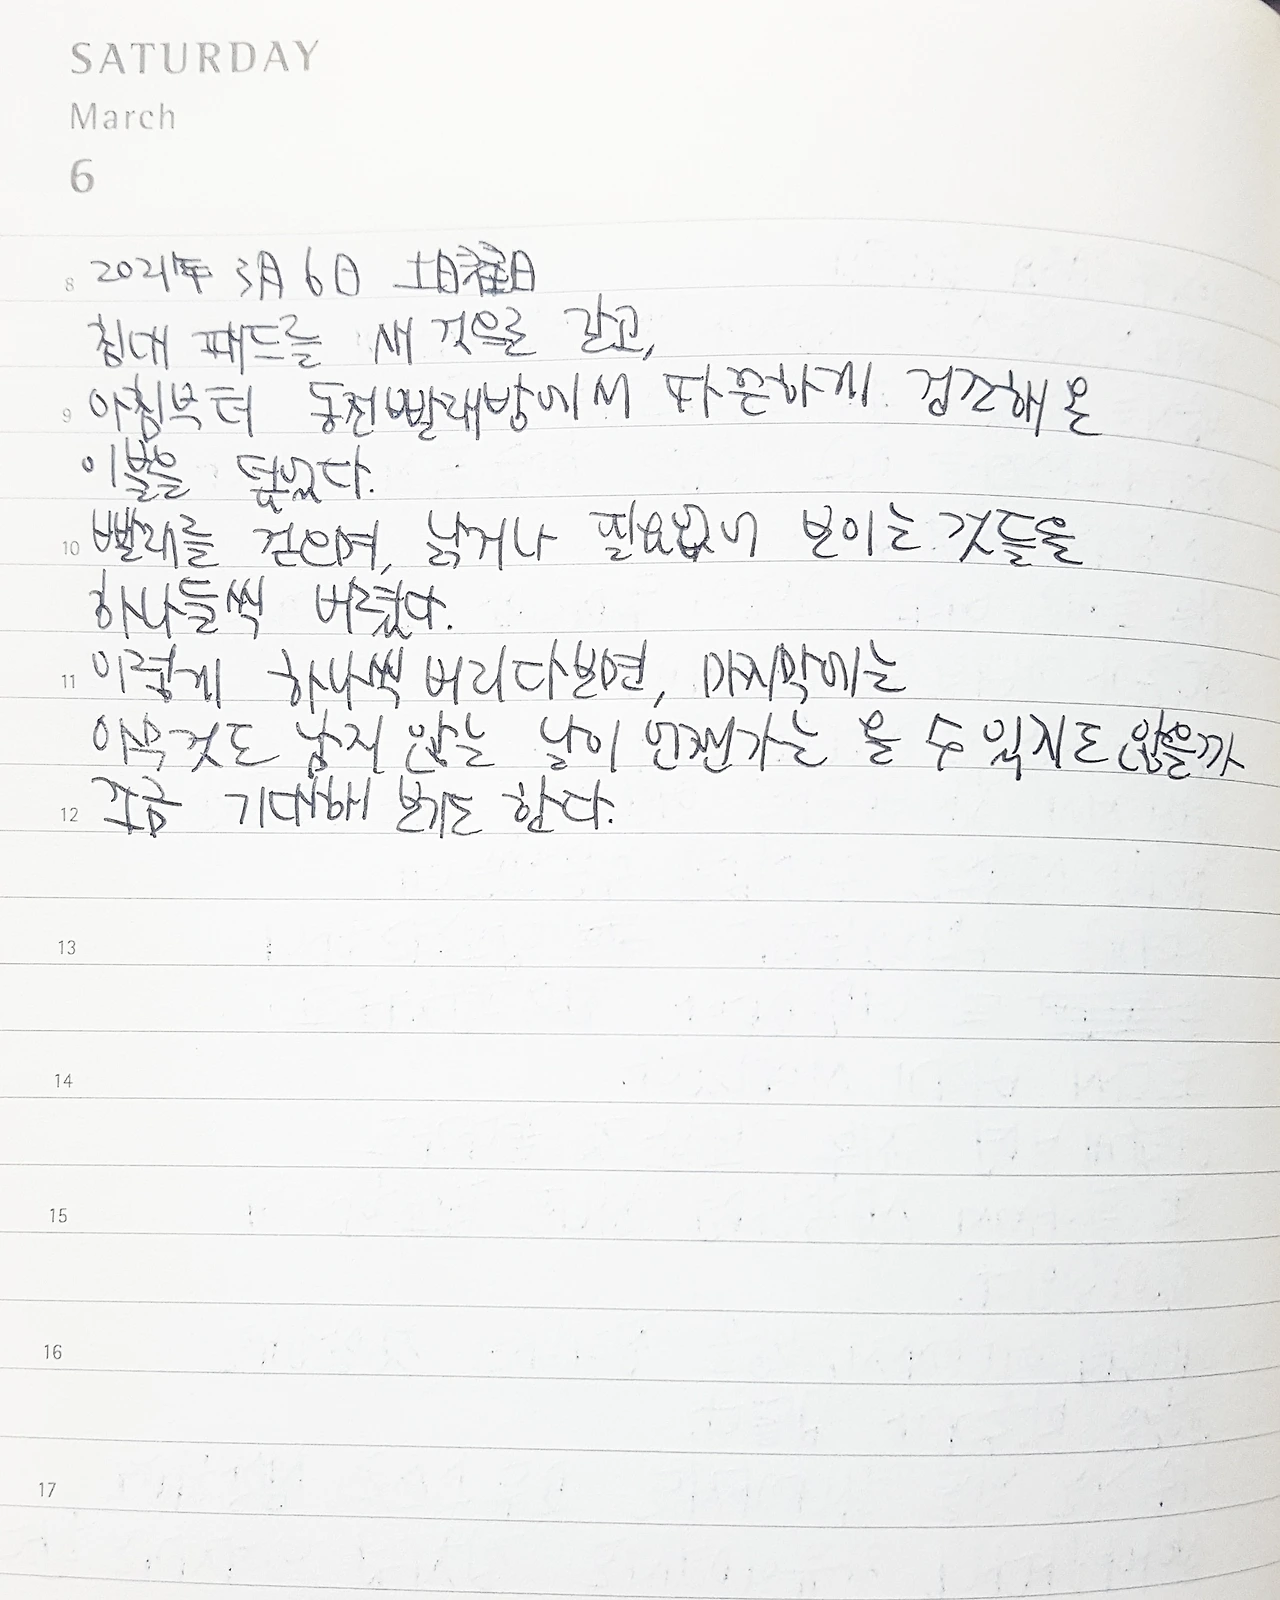 SATURDAY
March
6
8 2021年 3月 6日 土曜日
침대 패드를 새 것으로 갈고,
9 아침부터 동전빨래방에서 따끈하게 건조해 온
이불을 덮었다.
10 빨래를 걷으며, 낡거나 필요없어 보이는 것들을
하나둘씩 버렸다.
11 이렇게 하나씩 버리다보면, 마지막에는
아무것도 남지 않는 날이 언젠가는 올 수 있지도 않을까
12 조금 기대해 본기도 한다.
13
14
15
16
17